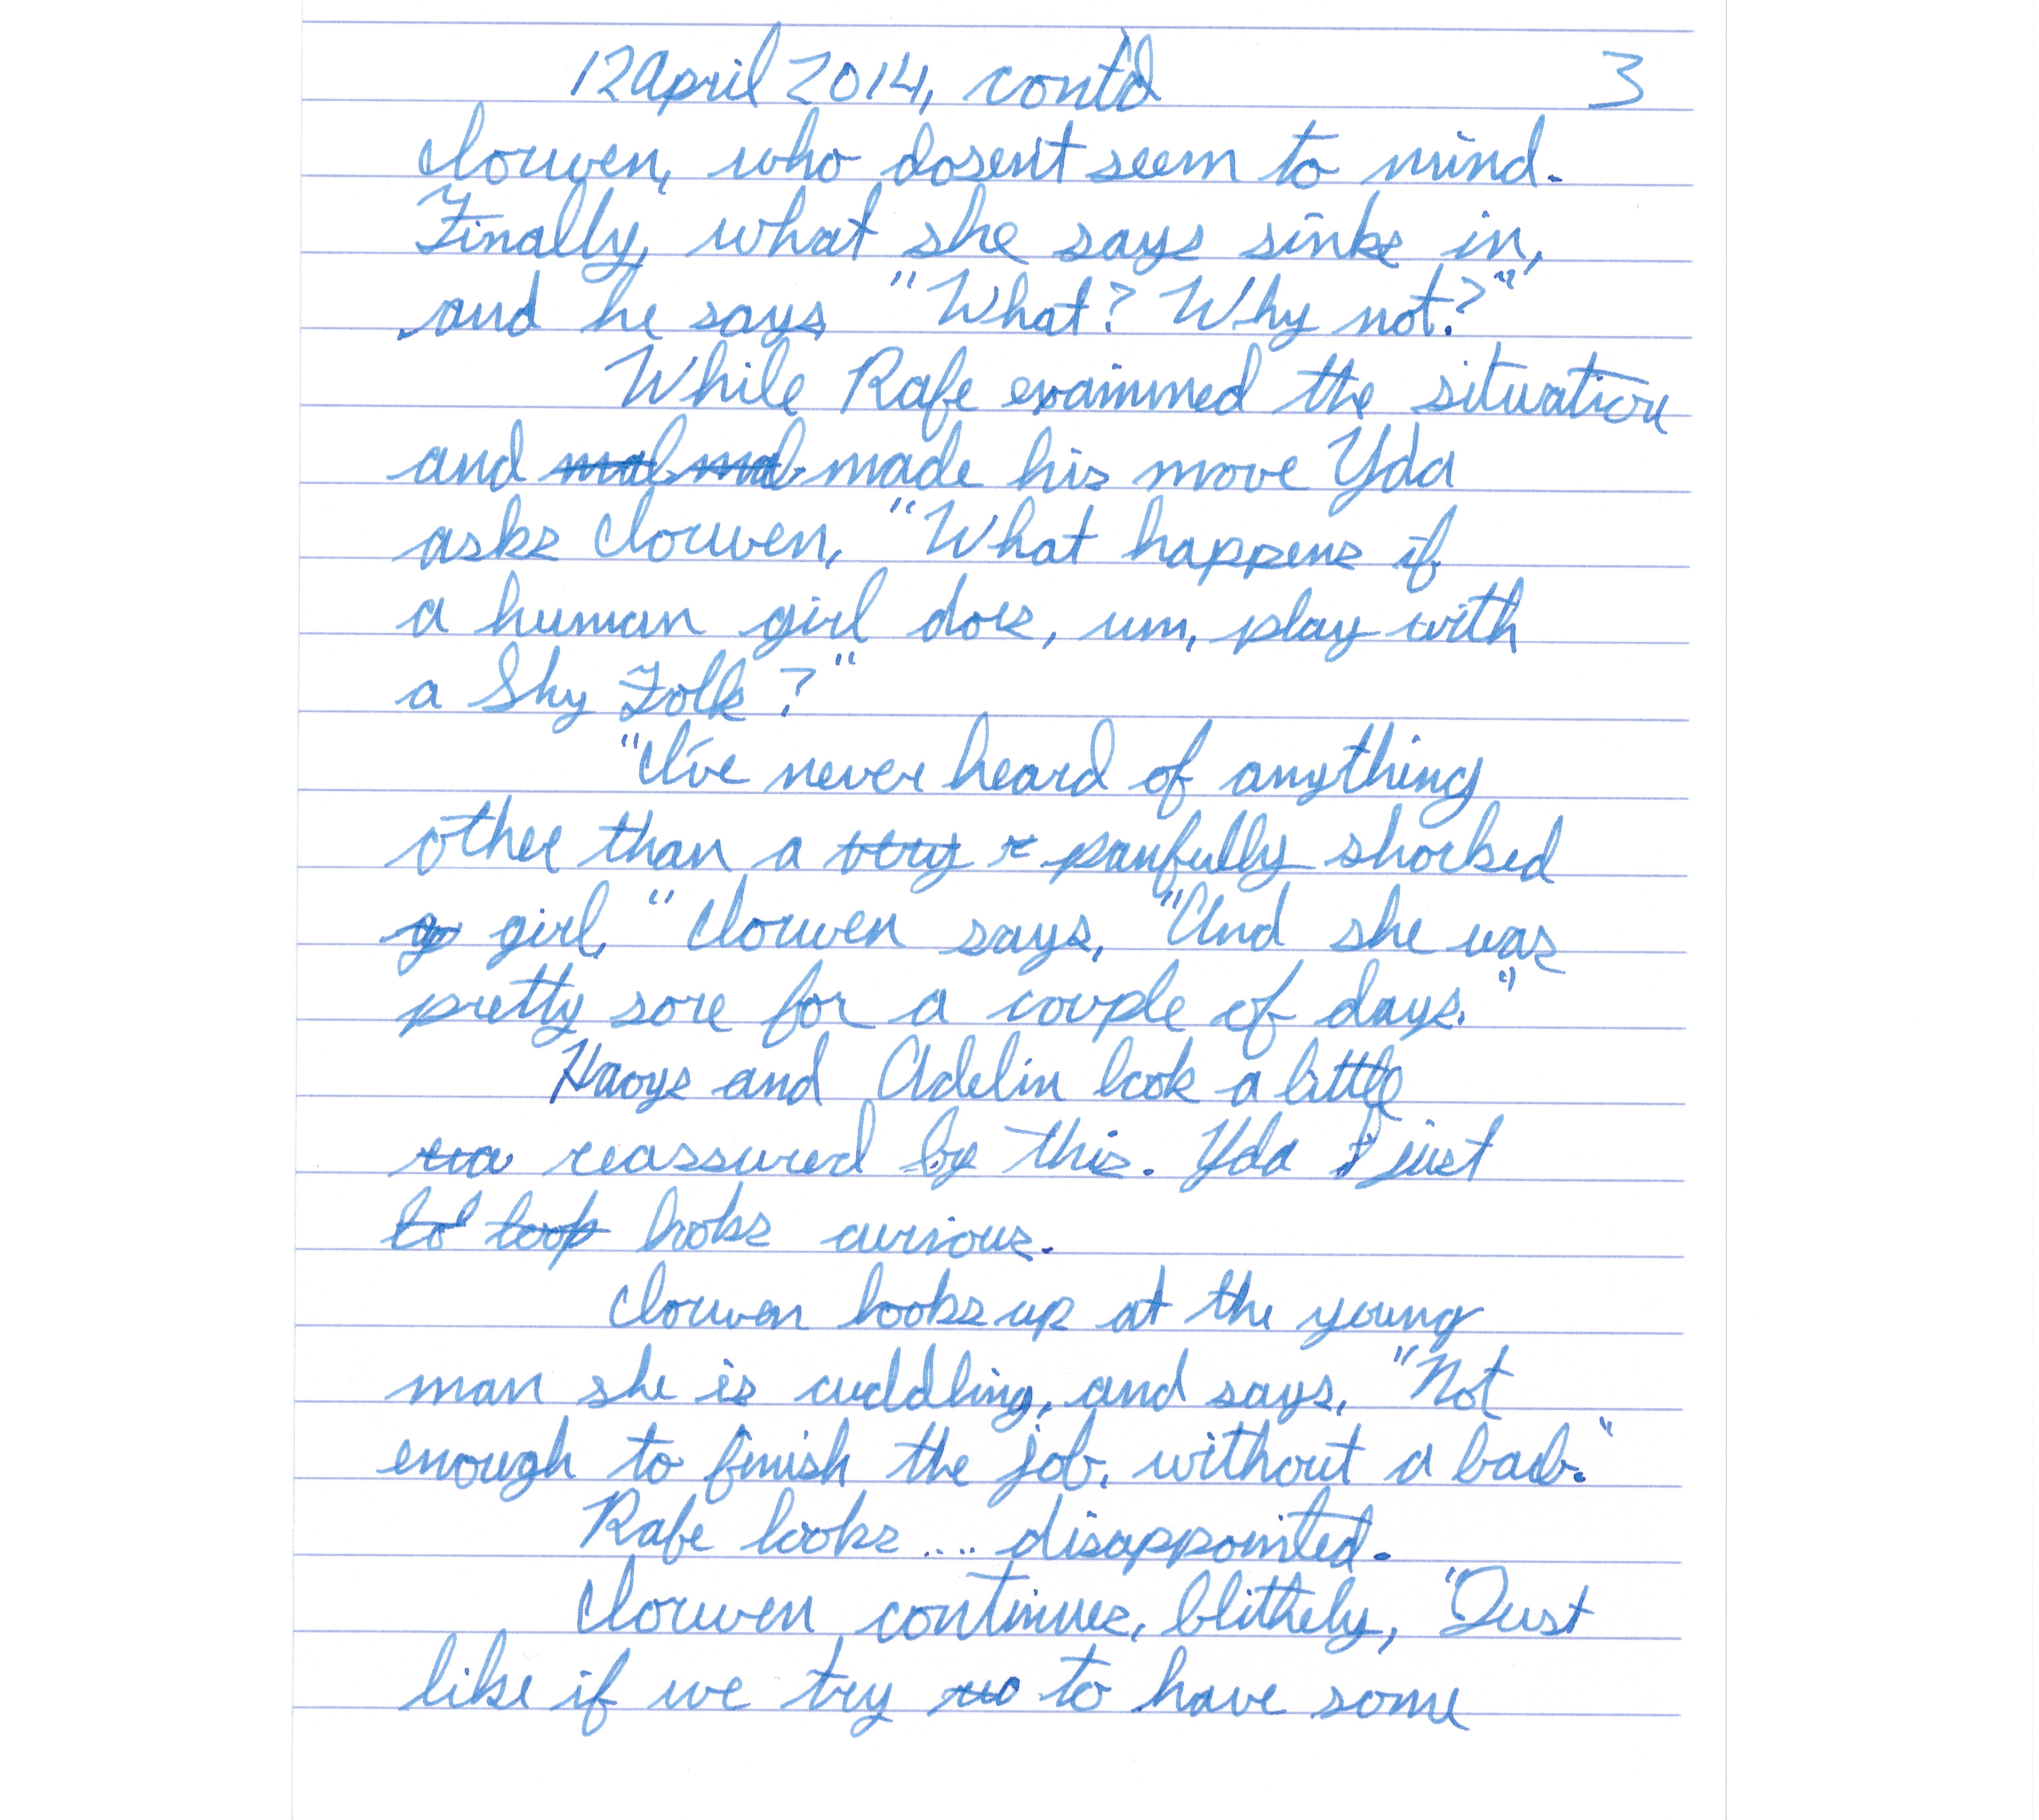 12 April 2014, cont'd 3
Clouwen, who dosen't seem to mind.
Finally, what she says sinks in,
and he says "What? Why not?"
While Rafe examined the situation
and made his move Yda
asks Clouwen, "What happens if
a human girl does, um, play with
a Shy Folk?"
"I've never heard of anything
other than a very painfully shocked
girl," Clouwen says, "And she was
pretty sore for a couple of days."
and Adelin look a little
reassured by this. Yda just
looks curious.
Clouwen looks up at the young
man she is cuddling, and says, "Not
enough to finish the job, without a bad."
Rafe looks .... disappointed.
Clouwen continues, blithely, "Just
like if we try to have some